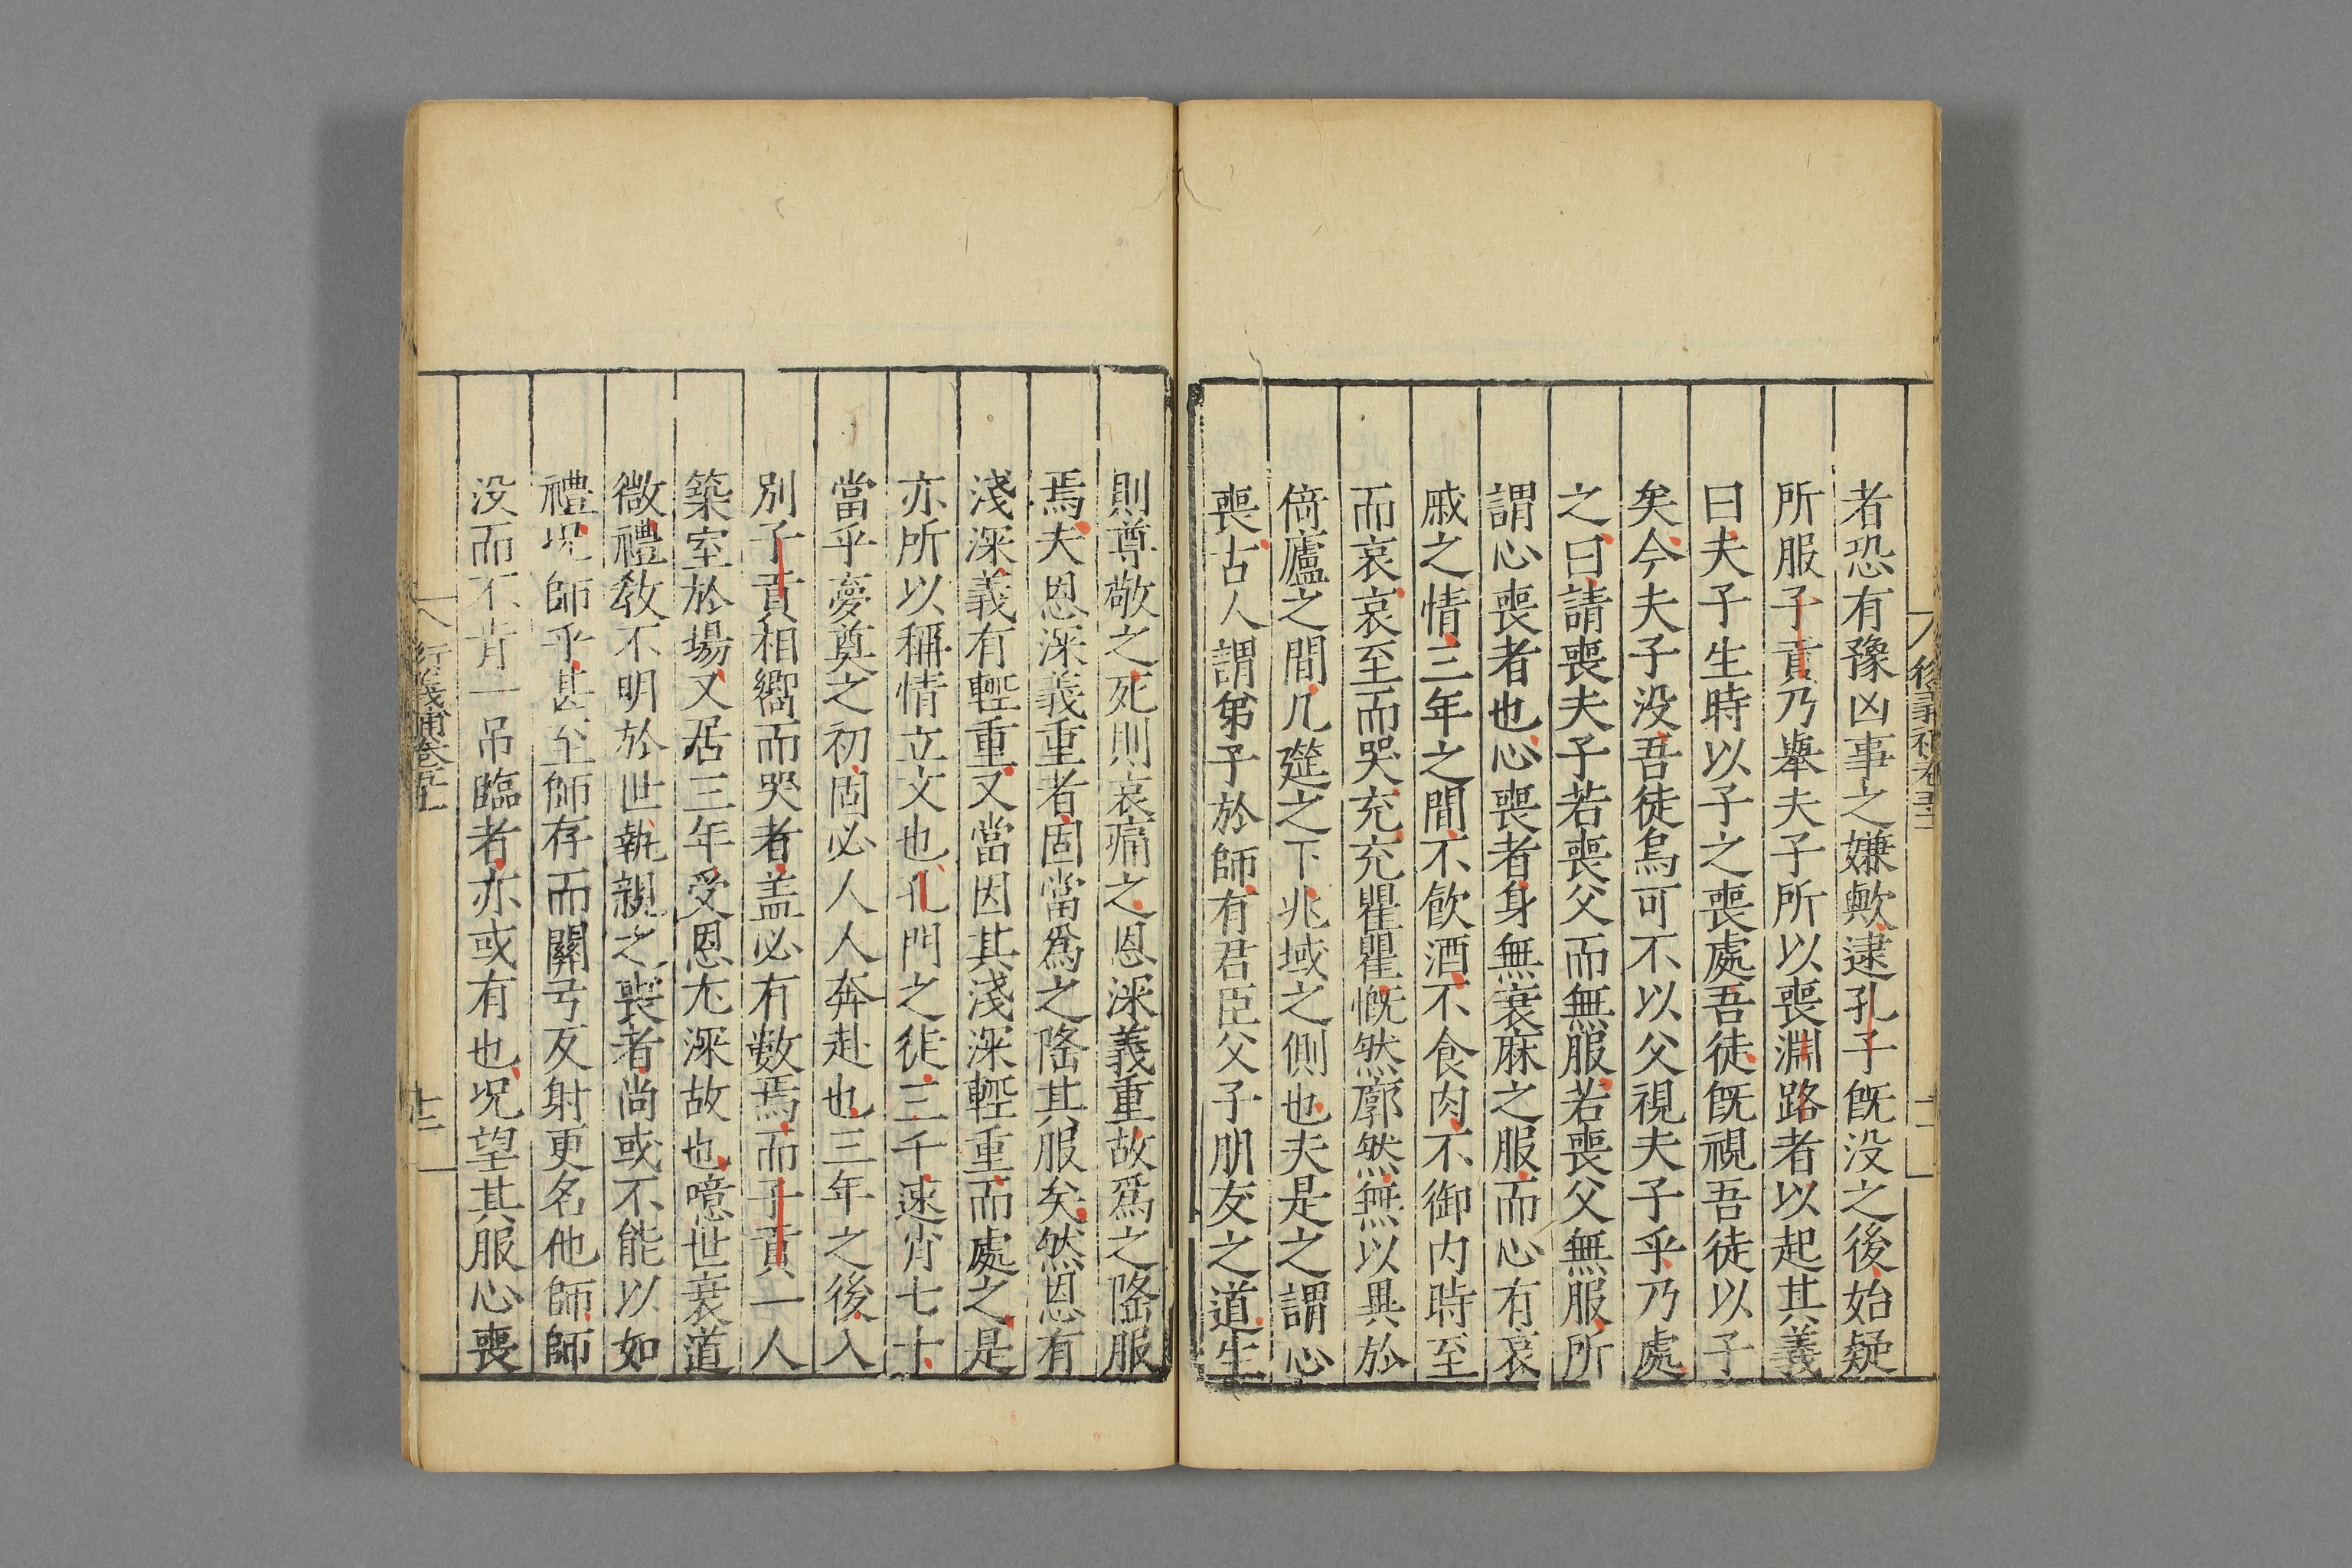 者恐有豫凶事之嫌歟逮孔子旣没之後始疑
所服子貢乃舉夫子所以喪淵路者以起其義
曰夫子生時以子之喪處吾徒旣視吾徒以子
矣今夫子没吾徒烏可不以父視夫子乎乃處
之曰請喪夫子若喪父而無服若喪父無服所
謂心喪者也心喪者身無衰麻之服而心有哀
戚之情三年之間不飮酒不食肉不御内時至
而哀哀至而哭充充瞿瞿慨然廓然無以異於
倚廬之間几筵之下兆域之側也夫是之謂心
喪古人謂弟子於師有君臣父子朋友之道生
則尊敬之死則哀痛之恩深義重故爲之隆服
焉夫恩深義重者固當爲之隆其服矣然恩有
淺深義有輕重又當因其淺深輕重而處之是
亦所以稱情立文也孔門之徒三千速肖七十
當乎夢奠之初固必人人奔赴也三年之後入
別子貢相嚮而哭者盖必有數焉而子貢一人
築室於場又居三年受恩尤深故也噫世衰道
微禮敎不明於世執親之喪者尚或不能以如
禮况師乎甚至師存而關弓反射更名他師師
没而不肯一吊臨者亦或有也况望其服心喪
衍義補卷五十一
十二